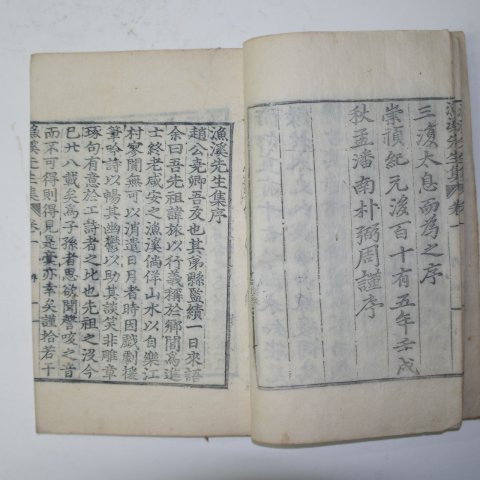 三復大息而爲之序
崇禎紀元後百十有五年壬戌
秋孟潘南朴弼周謹序
漁溪先生集序
趙公堯卿吾友也其弟縣監續一日來語
余曰吾先祖諱旅以行義稱於鄉闾爲進
士終老咸安之漁溪倘佯山水以自樂江
村寥闃無可以消遣日月者時因戲劇援
筆吟詩以暢其幽鬱以助其談笑非雕章
琢句有意於工詩者之比也先祖之沒今
已廿八載矣爲子孫者思欲聞謦咳之音
而不可得則得見是藁亦幸矣謹拾若干
漁溪先生集 卷一